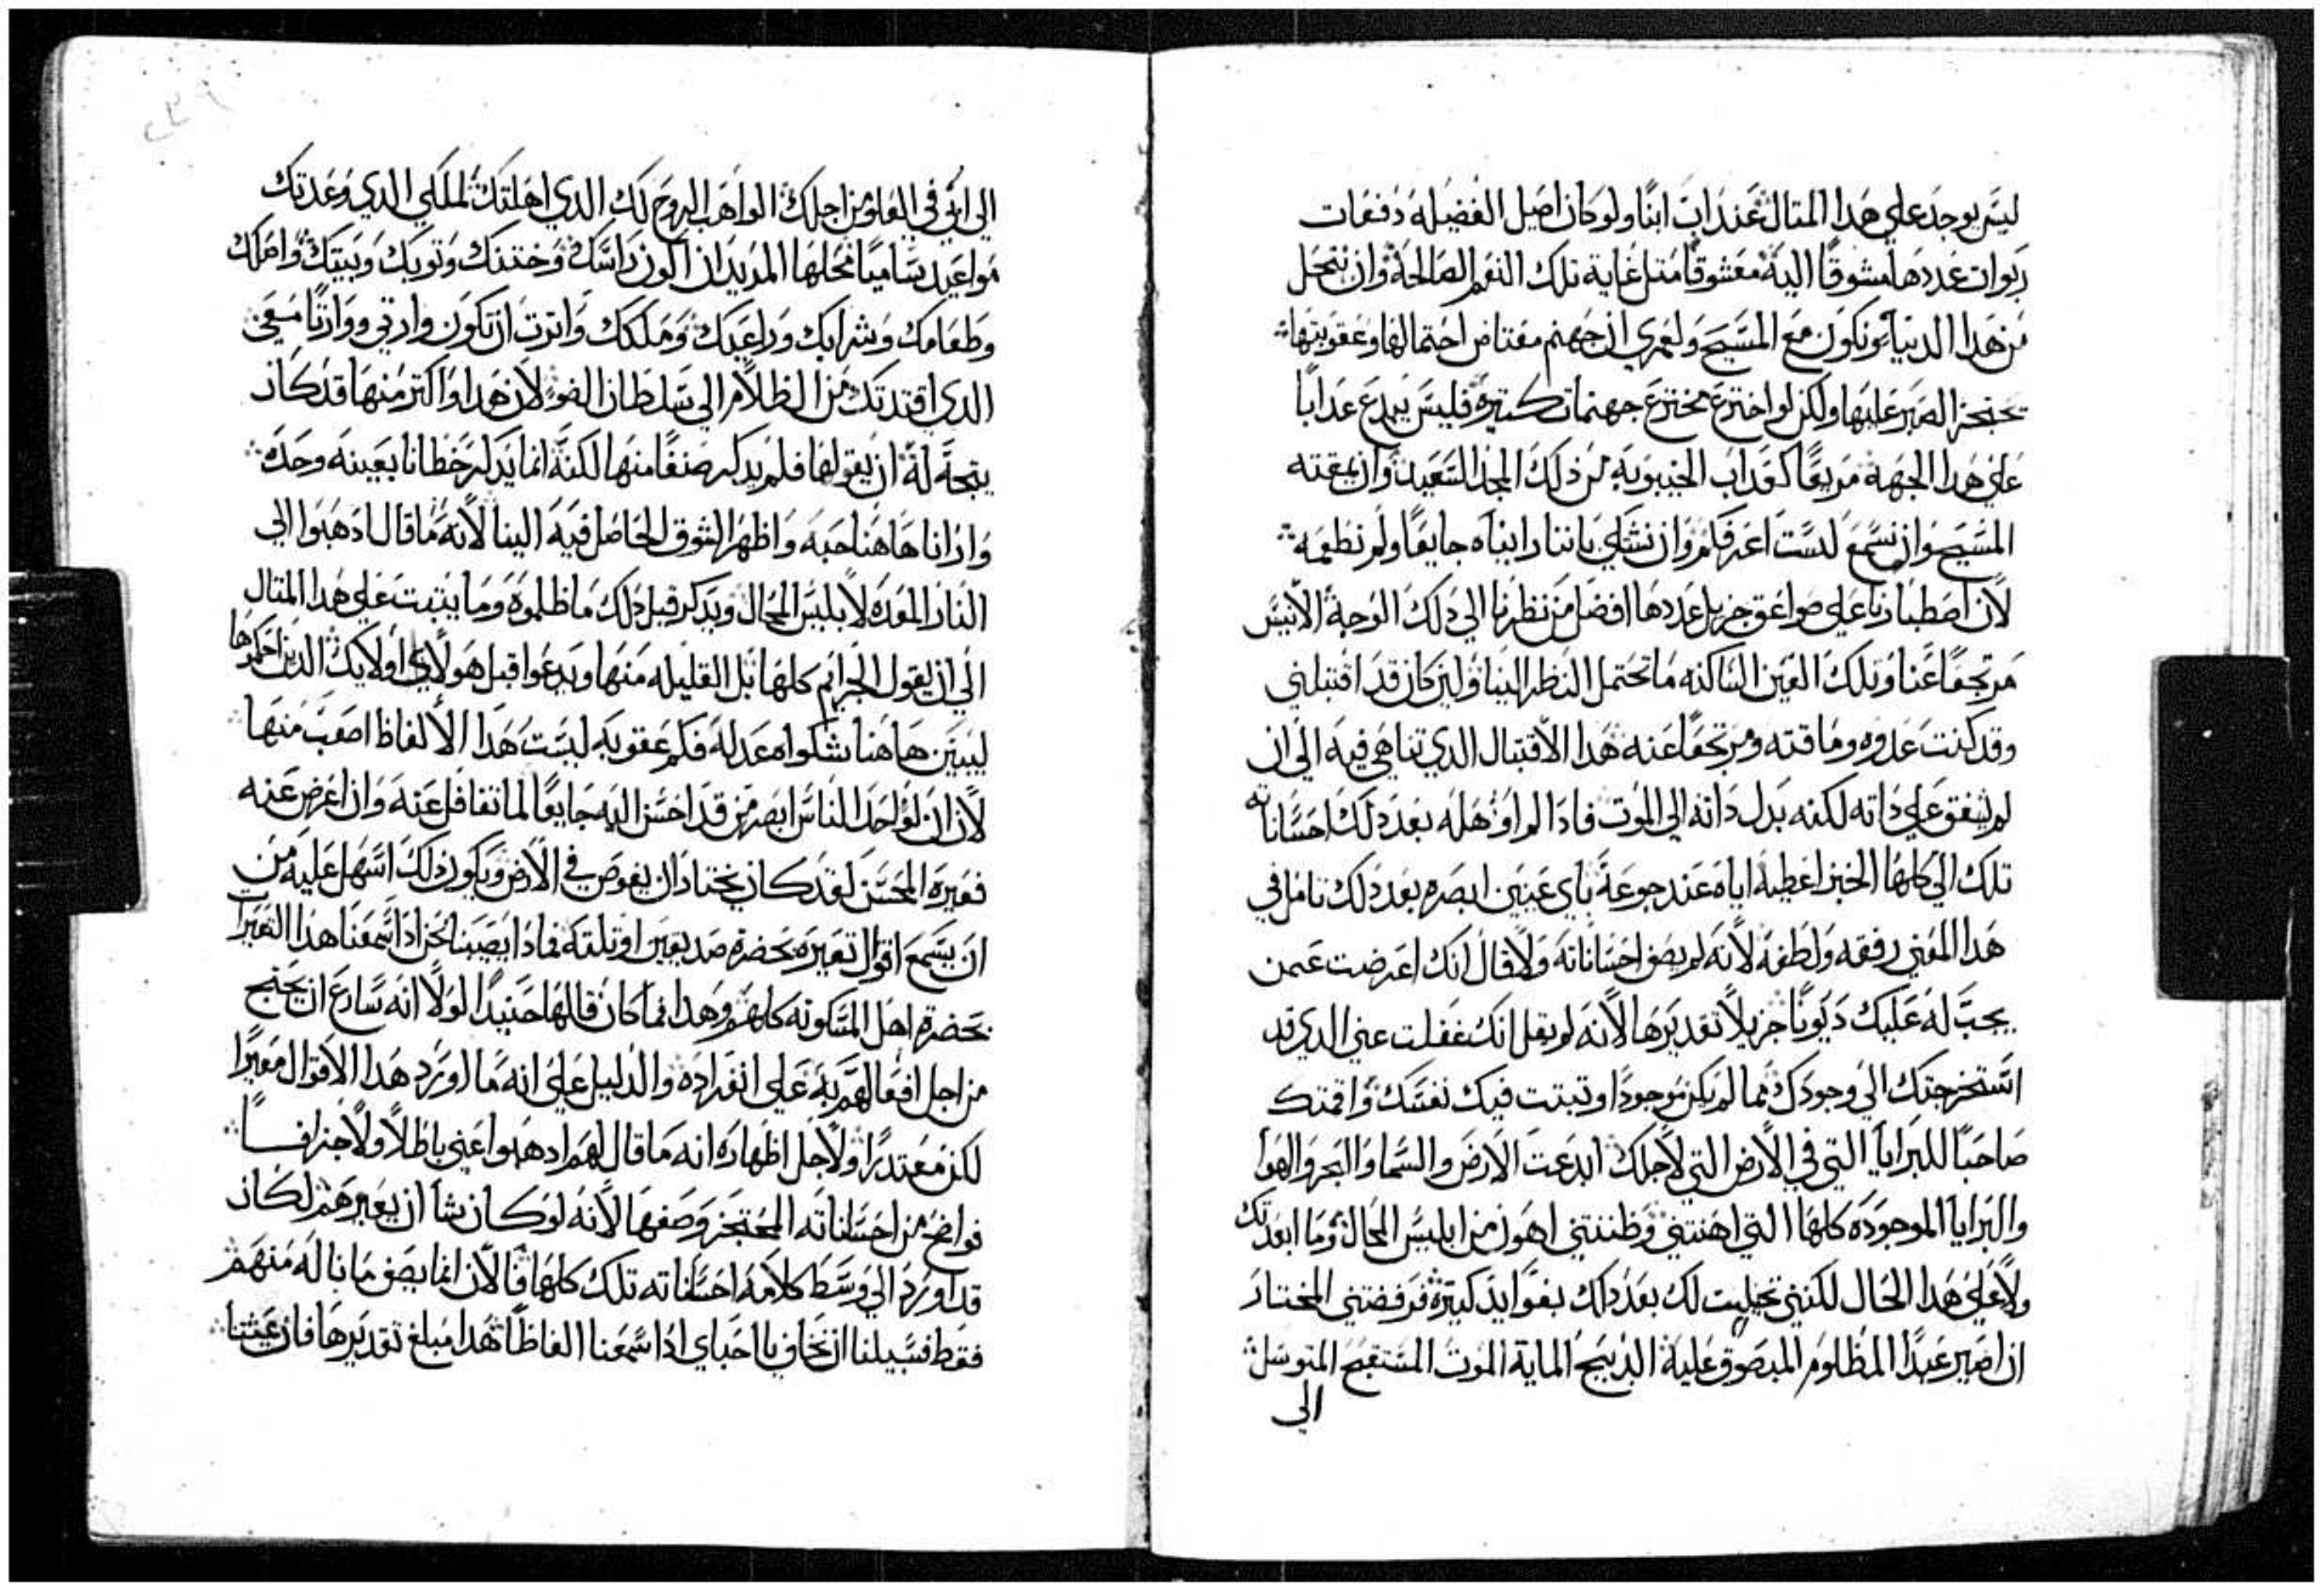 ليس يوجد علي هدا المتال عند اب ابنا ولو كان اصيل الفضيله دفعات
ربوات عددها مشوقا اليه معشوقا متل غاية تلك النعم الصالحه وان ننحل
من هدا الدنيا ونكون مع المسيح ولعمري ان جهنم معتاص احتمالها وعقوبتها
محتجز الصبر عليها ولكن لو اخترع مخترع جهنمات كتيره فليس يبدع عدابا
علي هدا الجهه مريعا كعداب الخيبوبه من ذلك المجد السعيد وان يمقته
المسيح وان نسمع لست اعرفكم وان نشتكي باننا رايناه جايعا ولم نطعمه
لان اصطبارنا علي صواعق جزيل عددها افضل من نظرنا الي دلك الوجه الانيس
مرتجعا عنا وتلك العين الساكنه ما تحتمل النظر الينا ولين كان قد اقتبلني
وقد كنت عدوه وماقته ومرتجعا عنه هدا الاقتبال الدي تناهي فيه الي ان
لم يشفق علي داته لكنه بدل داته الي الموت فادا لم اوهله بعد دلك احساناته
تلك الي كلها الخبز اعطيه اياه عند جوعه باي عينين ابصره بعد دلك تامل في
هدا المعني رفقه ولطفه لانه لم يصف احساناته ولا قال انك اعرضت عمن
يجب له عليك ديونا جزيلا تقديرها لانه لم يقل انك غفلت عني الدي قد
استخرجتك الي وجودك مما لم يكن موجودا وتبتت فيك نفسك واقمتك
صاحبا للبرايا التي في الارض التي لاجلك ابدعت الارض والسما والبحر والهوا
والبرايا الموجوده كلها التي اهنتني وظننتني اهون من ابليس المحال وما ابعدتك
ولا علي هدا الحال لكنني تخليت لك بعد دلك بفوايد كتيره فرفضتني المختار
ان اصير عبدا المظلوم المبصوق عليه الدبيح المايت الموت المستقبح المتوسل
الي
الي ابي في العلو من اجلك الواهب الروح لك الدي اهلتك لملكي الدي وعدتك
مواعيد ساميا محلها المريد ان اكون راسك وختنك وتوبك وبيتك واصلك
وطعامك وشرابك وراعيك وملكك واترت ان تكون وارتي ووارتا معي
الدي افتدتك من الظلام الي سلطان الضو لان هدا واكتر منها قد كان
يتجه له ان يقولها فلم يدكر صنفا منها لكنه انما يدكر خطانا بعينه وحده
وارانا هاهنا حبه واظهر الشوق الحاصل فيه الينا لانه ما قال ادهبوا الي
النار المعده لابليس المحال ويدكر قبل دلك ما ظلموه وما يتبت علي هدا المتال
الي ان يقول الجرايم كلها بل القليله منها ويدعوا قبل هولاي اولايك الدين احكموها
ليبين هاهنا شكواه عدله فكم عقوبه ليست هدا الالفاظ اصعب منها
لان ان لو احد الناس ابصر من قد احسن اليه جايعا لما تغافل عنه وان اعرض عنه
فعيره المحسن لقد كان يختار ان يغوص في الارض ويكون دلك اسهل عليه من
ان يسمع اقوال تعييره بحضرة صديقين او تلته فمادا يصيبنا نحن ادا سمعنا هدا التعييرات
بحضرة اهل المسكونه كلهم وهدا فما كان قالها حنيدا لولا انه سارع ان يحتج
من اجل افعالهم به علي انفراده والدليل علي انه ما اورد هدا الاقوال معيرا
لكن معتدرا ولاجل اظهاره انه ما قال لهم ادهبوا عني باطلا ولا جزافا
نواضح من احساناته المحتجز وصفها لانه لو كان يشا ان يعيرهم لكان
قد اورد الي وسط كلامه احساناته تلك كلها فالان انما يصف ما ناله منهم
فقط فسبيلنا ان نخاف يا احباي ادا سمعنا الفاظا هدا مبلغ تقديرها فان عيشنا